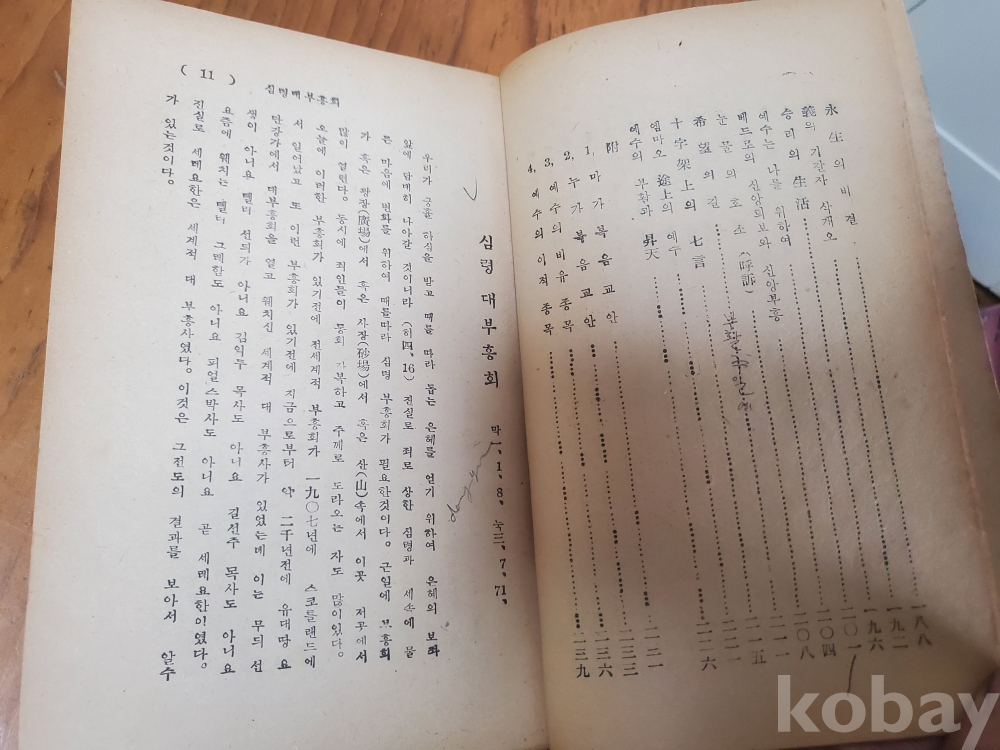 永生의 비결 ……… 一八八
義의 기갈자 삭개오 ……… 一九二
승리의 生活 ……… 一九六
예수는 나를 위하여 ……… 二〇一
베드로의 신앙퇴보와 신앙부흥 ……… 二〇四
눈물의 호소 (呼訴) ……… 二〇八
希望의 길 ……… 二一一
十字架上의 七言 ……… 二一五
엠마오 途上의 예수 ……… 二二一
예수의 부활과 昇天 ……… 二二六
附
1, 마가복음교안 ……… 二二一
2, 누가복음교안 ……… 二三三
3, 예수의 비유 종목 ……… 二三六
4, 예수의 이적 종목 ……… 二三九
( 11 ) 심령대부흥회
심령 대부흥회 막一、1, 8, 눅三、7, 71,
우리가 긍휼 하심을 받고 때를 따라 돕는 은혜를 얻기 위하여 은혜의 보좌
앞에 담대히 나아갈 것이니라 (히四、16) 진실로 죄로 상한 심령과 세속에 물
든 마음에 변화를 위하여 때를따라 심령 부흥회가 필요한것이다。 근일에 부흥회
가 혹은 광장(廣場)에서 혹은 사장(砂場)에서 혹은 산(山)속에서 이곳 저곳에서
많이 열린다。 동시에 죄인들이 통회 자복하고 주께로 도라오는 자도 많이있다。
오늘에 이러한 부흥회가 있기전에 전세계적 부흥회가 一九〇七년에 스코틀랜드에
서 일어났고 또 이런 부흥회가 있기전에 지금으로부터 약 二千년전에 유대땅 요
단강가에서 대부흥회을 열고 웨치신 세계적 대 부흥사가 있었는데 이는 무듸 선
생이 아니요 삘니 선듸가 아니요 김익두 목사도 아니요 길선주 목사도 아니요
요즘에 웨치는 삘니 그레함도 아니요 피얼스박사도 아니요 곧 세레요한이였다。
진실로 세레요한은 세계적 대 부흥사였다。 이것은 그전도의 결과를 보아서 알수
가 있는것이다。
kobay